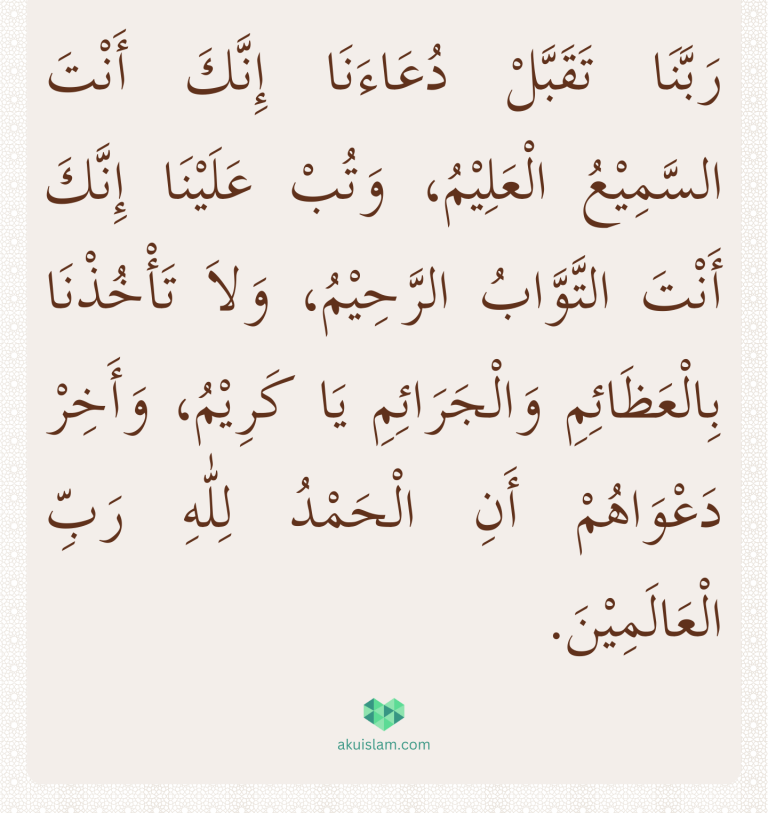 رَبَّنَا تَقَبَّلْ دُعَاءَنَا إِنَّكَ أَنْتَ
السَّمِيْعُ الْعَلِيْمُ، وَتُبْ عَلَيْنَا إِنَّكَ
أَنْتَ التَّوَّابُ الرَّحِيْمُ، وَلاَ تَأْخُذْنَا
بِالْعَظَائِمِ وَالْجَرَائِمِ يَا كَرِيْمُ، وَأَخِرْ
دَعْوَاهُمْ أَنِ الْحَمْدُ لِلّٰهِ رَبِّ
الْعَالَمِيْنَ.
akuislam.com